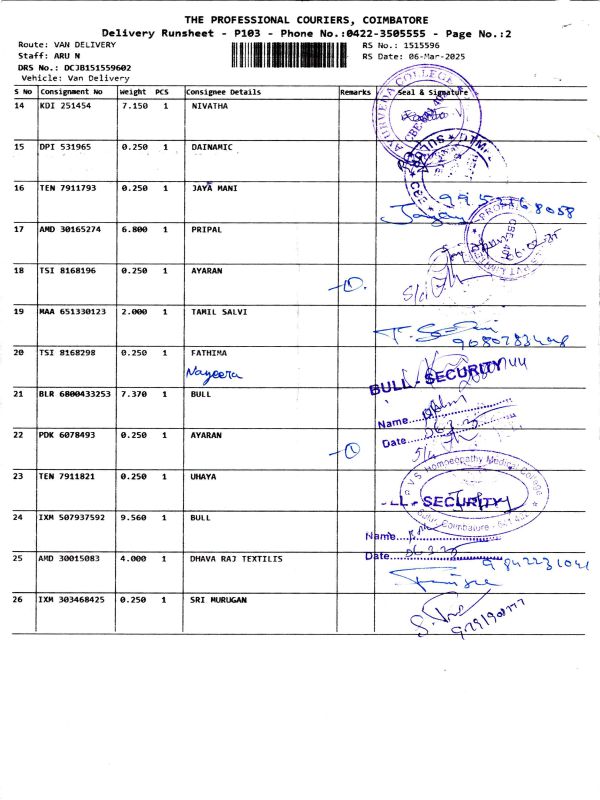 THE PROFESSIONAL COURIERS, COIMBATORE
Delivery Runsheet - P103 - Phone No.:0422-3505555 - Page No.:2
Route: VAN DELIVERY RS No.: 1515596
Staff: ARU N RS Date: 06-Mar-2025
DRS No.: DCJB151559602
Vehicle: Van Delivery
S No Consignment No Weight PCS Consignee Details Remarks Seal & Signature
14 KDI 251454 7.150 1 NIVATHA
AYURVEDA COLLEGE
15 DPI 531965 0.250 1 DAINAMIC
16 TEN 7911793 0.250 1 JAYA MANI
17 AMD 30165274 6.800 1 PRIPAL
18 TSI 8168196 0.250 1 AYARAN
19 MAA 651330123 2.000 1 TAMIL SALVI
20 TSI 8168298 0.250 1 FATHIMA
Nayeera
BULL - SECURITY
21 BLR 6800433253 7.370 1 BULL
Name
Date 06.3.25
22 PDK 6078493 0.250 1 AYARAN
23 TEN 7911821 0.250 1 UHAYA
R.V.S. Homoeopathy Medical College
Sulur, Coimbatore - 641 402
SECURITY
24 IXM 507937592 9.560 1 BULL
Name
Date 06.3.25
25 AMD 30015083 4.000 1 DHAVA RAJ TEXTILIS
9842231041
26 IXM 303468425 0.250 1 SRI MURUGAN